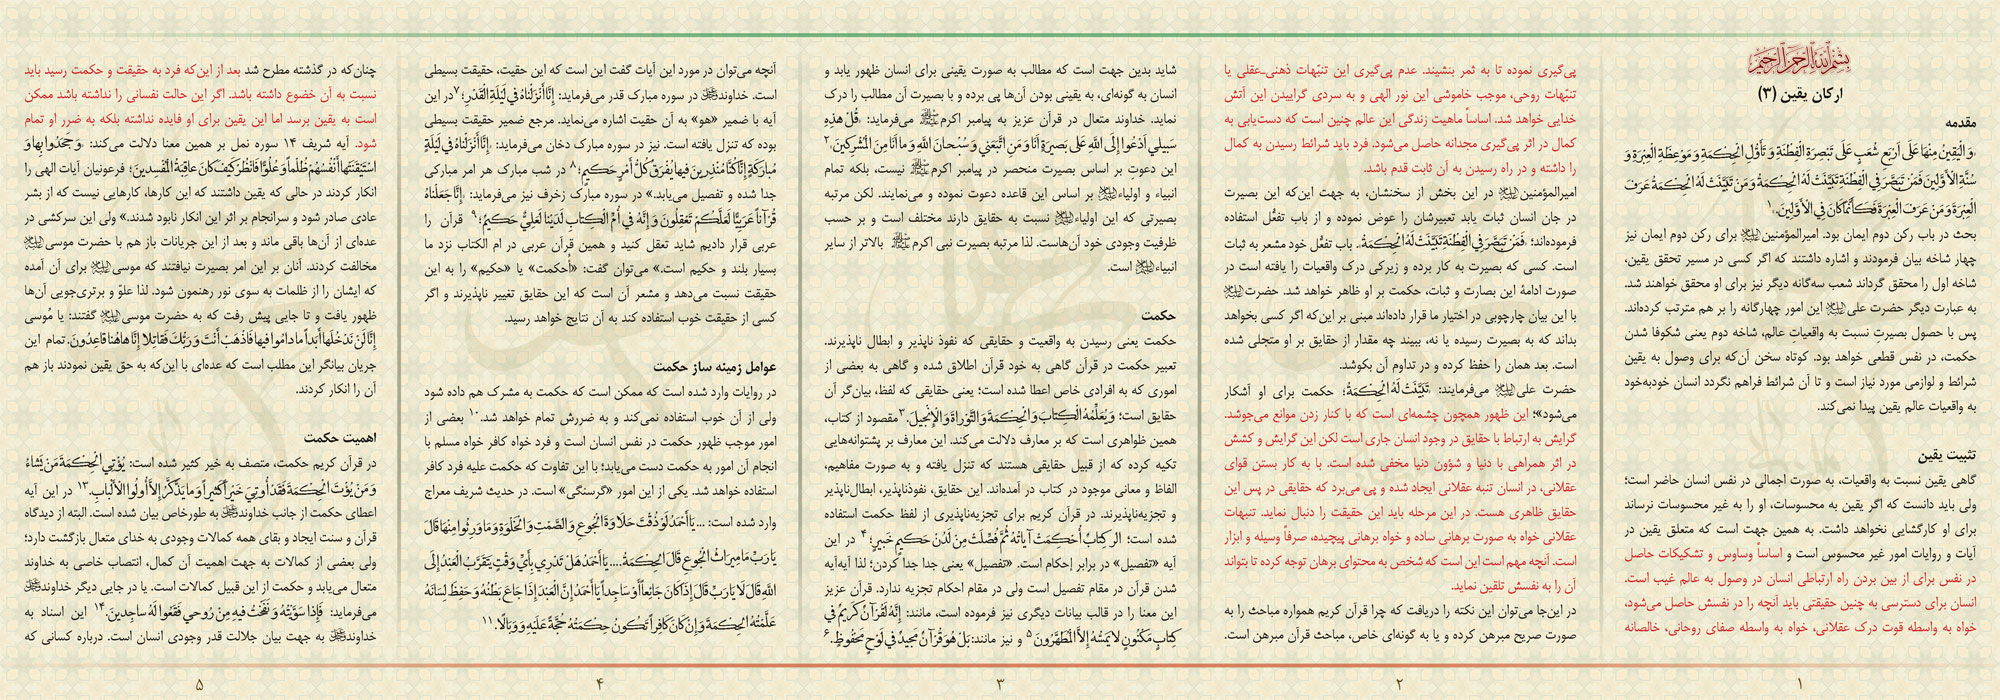 بسم الله الرحمن الرحیم
ارکان یقین (۳)
مقدمه
«وَ الْیَقِینُ مِنْهَا عَلَی أَرْبَعِ شُعَبٍ عَلَی تَبْصِرَةِ الْفِطْنَةِ وَ تَأَوُّلِ الْحِکْمَةِ وَ مَوْعِظَةِ الْعِبْرَةِ وَ
سُنَّةِ الْأَوَّلِینَ فَمَنْ تَبَصَّرَ فِی الْفِطْنَةِ تَبَیَّنَتْ لَهُ الْحِکْمَةُ وَ مَنْ تَبَیَّنَتْ لَهُ الْحِکْمَةُ عَرَفَ
الْعِبْرَةَ وَ مَنْ عَرَفَ الْعِبْرَةَ فَکَأَنَّمَا کَانَ فِی الْأَوَّلِینَ.»۱
بحث در باب رکن دوم ایمان بود. امیرالمؤمنین؏ برای رکن دوم ایمان نیز
چهار شاخه بیان فرمودند و اشاره داشتند که اگر کسی در مسیر تحقق یقین،
شاخه اول را محقق گرداند شعب سه‌گانه دیگر نیز برای او محقق خواهند شد.
به عبارت دیگر حضرت علی؏ این امور چهارگانه را بر هم مترتب کرده‌اند.
پس با حصول بصیرت نسبت به واقعیات عالم، شاخه دوم یعنی شکوفا شدن
حکمت، در نفس قطعی خواهد بود. کوتاه سخن آن‌که برای وصول به یقین
شرائط و لوازمی مورد نیاز است و تا آن شرائط فراهم نگردد انسان خودبه‌خود
به واقعیات عالم یقین پیدا نمی‌کند.
تثبیت یقین
گاهی یقین نسبت به واقعیات، به صورت اجمالی در نفس انسان حاضر است؛
ولی باید دانست که اگر یقین به محسوسات، او را به غیر محسوسات نرساند
برای او کارگشایی نخواهد داشت. به همین جهت است که متعلق یقین در
آیات و روایات امور غیر محسوس است و اساساً وساوس و تشکیکات حاصل
در نفس برای از بین بردن راه ارتباطی انسان در وصول به عالم غیب است.
انسان برای دسترسی به چنین حقیقتی باید آنچه را در نفسش حاصل می‌شود،
خواه به واسطه قوت درک عقلانی، خواه به واسطه صفای روحانی، خالصانه
۱
پی‌گیری نموده تا به ثمر بنشیند. عدم پی‌گیری این تنبّهات ذهنی-عقلی یا
تنبّهات روحی، موجب خاموشی این نور الهی و به سردی گراییدن این آتش
خدایی خواهد شد. اساساً ماهیت زندگی این عالم چنین است که دست‌یابی به
کمال در اثر پی‌گیری مجدانه حاصل می‌شود. فرد باید شرائط رسیدن به کمال
را داشته و در راه رسیدن به آن ثابت قدم باشد.
امیرالمؤمنین؏ در این بخش از سخنشان، به جهت این‌که این بصیرت
در جان انسان ثبات یابد تعبیرشان را عوض نموده و از باب تفعُّل استفاده
فرموده‌اند؛ «فَمَنْ تَبَصَّرَ فِی الْفِطْنَةِ تَبَیَّنَتْ لَهُ الْحِکْمَةُ». باب تفعُّل خود مشعر به ثبات
است. کسی که بصیرت به کار برده و زیرکی درک واقعیات را یافته است در
صورت ادامهٔ این بصارت و ثبات، حکمت بر او ظاهر خواهد شد. حضرت؏
با این بیان چارچوبی در اختیار ما قرار داده‌اند مبنی بر این‌که اگر کسی بخواهد
بداند که به بصیرت رسیده یا نه، ببیند چه مقدار از حقایق بر او متجلی شده
است. بعد همان را حفظ کرده و در تداوم آن بکوشد.
حضرت علی؏ می‌فرمایند: «تَبَیَّنَتْ لَهُ الْحِکْمَةُ؛ حکمت برای او آشکار
می‌شود»؛ این ظهور همچون چشمه‌ای است که با کنار زدن موانع می‌جوشد.
گرایش به ارتباط با حقایق در وجود انسان جاری است لکن این گرایش و کشش
در اثر همراهی با دنیا و شؤون دنیا مخفی شده است. با به کار بستن قوای
عقلانی، در انسان تنبه عقلانی ایجاد شده و پی می‌برد که حقایقی در پس این
حقایق ظاهری هست. در این مرحله باید این حقیقت را دنبال نماید. تنبهات
عقلانی خواه به صورت برهانی ساده و خواه برهانی پیچیده، صرفاً وسیله و ابزار
است. آنچه مهم است این است که شخص به محتوای برهان توجه کرده تا بتواند
آن را به نفسش تلقین نماید.
در این‌جا می‌توان این نکته را دریافت که چرا قرآن کریم همواره مباحث را به
صورت صریح مبرهن کرده و یا به گونه‌ای خاص، مباحث قرآن مبرهن است.
۲
شاید بدین جهت است که مطالب به صورت یقینی برای انسان ظهور یابد و
انسان به گونه‌ای، به یقینی بودن آن‌ها پی برده و با بصیرت آن مطالب را درک
نماید. خداوند متعال در قرآن عزیز به پیامبر اکرمﷺ می‌فرماید: «قُلْ هذِهِ
سَبِیلِی أَدْعُوا إِلَی اللَّهِ عَلی بَصِیرَةٍ أَنَا وَ مَنِ اتَّبَعَنِی وَ سُبْحانَ اللَّهِ وَ ما أَنَا مِنَ الْمُشْرِکِینَ».۲
این دعوت بر اساس بصیرت منحصر در پیامبر اکرمﷺ نیست، بلکه تمام
انبیاء و اولیاء؏ بر اساس این قاعده دعوت نموده و می‌نمایند. لکن مرتبه
بصیرتی که این اولیاء؏ نسبت به حقایق دارند مختلف است و بر حسب
ظرفیت وجودی خود آن‌هاست. لذا مرتبه بصیرت نبی اکرمﷺ بالاتر از سایر
انبیاء؏ است.
حکمت
حکمت یعنی رسیدن به واقعیت و حقایقی که نفوذ ناپذیر و ابطال ناپذیرند.
تعبیر حکمت در قرآن گاهی به خود قرآن اطلاق شده و گاهی به بعضی از
اموری که به افرادی خاص اعطا شده است؛ یعنی حقایقی که لفظ، بیان‌گر آن
حقایق است؛ «وَ یُعَلِّمُهُ الْکِتابَ وَ الْحِکْمَةَ وَ التَّوْراةَ وَ الْإِنْجِیلَ».۳ مقصود از کتاب،
همین ظواهری است که بر معارف دلالت می‌کند. این معارف بر پشتوانه‌هایی
تکیه کرده که از قبیل حقایقی هستند که تنزل یافته و به صورت مفاهیم،
الفاظ و معانی موجود در کتاب در آمده‌اند. این حقایق، نفوذناپذیر، ابطال‌ناپذیر
و تجزیه‌ناپذیرند. در قرآن کریم برای تجزیه‌ناپذیری از لفظ حکمت استفاده
شده است؛ «الر کِتابٌ أُحْکِمَتْ آیاتُهُ ثُمَّ فُصِّلَتْ مِنْ لَدُنْ حَکِیمٍ خَبِیرٍ»؛۴ در این
آیه «تفصیل» در برابر إحکام است. «تفصیل» یعنی جدا جدا کردن؛ لذا آیه‌آیه
شدن قرآن در مقام تفصیل است ولی در مقام احکام تجزیه ندارد. قرآن عزیز
این معنا را در قالب بیانات دیگری نیز فرموده است، مانند: «إِنَّهُ لَقُرْآنٌ کَرِیمٌ فِی
کِتابٍ مَکْنُونٍ لا یَمَسُّهُ إِلاَّ الْمُطَهَّرُونَ»۵ و نیز مانند: «بَلْ هُوَ قُرْآنٌ مَجِیدٌ فِی لَوْحٍ مَحْفُوظٍ».۶
۳
آنچه می‌توان در مورد این آیات گفت این است که این حقیت، حقیقت بسیطی
است. خداوندﷻ در سوره مبارک قدر می‌فرماید: «إِنَّا أَنْزَلْناهُ فِی لَیْلَةِ الْقَدْرِ»؛۷ در این
آیه با ضمیر «هو» به آن حقیت اشاره می‌نماید. مرجع ضمیر حقیقت بسیطی
بوده که تنزل یافته است. نیز در سوره مبارک دخان می‌فرماید: «إِنَّا أَنْزَلْناهُ فِی لَیْلَةٍ
مُبارَکَةٍ إِنَّا کُنَّا مُنْذِرِینَ فِیها یُفْرَقُ کُلُّ أَمْرٍ حَکِیمٍ؛۸ در شب مبارک هر امر مبارکی
جدا شده و تفصیل می‌یابد.» در سوره مبارک زخرف نیز می‌فرماید: «إِنَّا جَعَلْناهُ
قُرْآناً عَرَبِیًّا لَعَلَّکُمْ تَعْقِلُونَ وَ إِنَّهُ فِی أُمِّ الْکِتابِ لَدَیْنا لَعَلِیٌّ حَکِیمٌ؛۹ قرآن را
عربی قرار دادیم شاید تعقل کنید و همین قرآن عربی در ام الکتاب نزد ما
بسیار بلند و حکیم است.» می‌توان گفت: «اُحکمت» یا «حکیم» را به این
حقیقت نسبت می‌دهد و مشعر آن است که این حقایق تغییر ناپذیرند و اگر
کسی از حقیقت خوب استفاده کند به آن نتایج خواهد رسید.
عوامل زمینه ساز حکمت
در روایات وارد شده است که ممکن است که حکمت به مشرک هم داده شود
ولی از آن خوب استفاده نمی‌کند و به ضررش تمام خواهد شد.۱۰ بعضی از
امور موجب ظهور حکمت در نفس انسان است و فرد خواه کافر خواه مسلم با
انجام آن امور به حکمت دست می‌یابد؛ با این تفاوت که حکمت علیه فرد کافر
استفاده خواهد شد. یکی از این امور «گرسنگی» است. در حدیث شریف معراج
وارد شده است: «... یَا أَحْمَدُ لَوْ ذُقْتَ حَلَاوَةَ الْجُوعِ وَ الصَّمْتِ وَ الْخَلْوَةِ وَ مَا وَرِثُوا مِنْهَا قَالَ
یَا رَبِّ مَا مِیرَاثُ الْجُوعِ قَالَ الْحِکْمَةُ.... یَا أَحْمَدُ هَلْ تَدْرِی بِأَیِّ وَقْتٍ یَتَقَرَّبُ الْعَبْدُ إِلَی
اللَّهِ قَالَ لَا یَا رَبِّ قَالَ إِذَا کَانَ جَائِعاً أَوْ سَاجِداً یَا أَحْمَدُ إِنَّ الْعَبْدَ إِذَا جَاعَ بَطْنُهُ وَ حَفِظَ لِسَانَهُ
عَلَّمْتُهُ الْحِکْمَةَ وَ إِنْ کَانَ کَافِراً تَکُونُ حِکْمَتُهُ حُجَّةً عَلَیْهِ وَ وَبَالًا».۱۱
۴
چنان‌که در گذشته مطرح شد بعد از این‌که فرد به حقیقت و حکمت رسید باید
نسبت به آن خضوع داشته باشد. اگر این حالت نفسانی را نداشته باشد ممکن
است به یقین برسد اما این یقین برای او فایده نداشته بلکه به ضرر او تمام
شود. آیه شریف ۱۴ سوره نمل بر همین معنا دلالت می‌کند: «وَ جَحَدُوا بِها وَ
اسْتَیْقَنَتْها أَنْفُسُهُمْ ظُلْماً وَ عُلُوًّا فَانْظُرْ کَیْفَ کانَ عاقِبَةُ الْمُفْسِدِینَ؛ فرعونیان آیات الهی را
انکار کردند در حالی که یقین داشتند که این کارها، کارهایی نیست که از بشر
عادی صادر شود و سرانجام بر اثر این انکار نابود شدند.» ولی این سرکشی در
عده‌ای از آن‌ها باقی ماند و بعد از این جریانات باز هم با حضرت موسی؏
مخالفت کردند. آنان بر این امر بصیرت نیافتند که موسی؏ برای آن آمده
که ایشان را از ظلمات به سوی نور رهنمون شود. لذا علوّ و برتری‌جویی آن‌ها
ظهور یافت و تا جایی پیش رفت که به حضرت موسی؏ گفتند: «یا مُوسی
إِنَّا لَنْ نَدْخُلَها أَبَداً ما دامُوا فِیها فَاذْهَبْ أَنْتَ وَ رَبُّکَ فَقاتِلا إِنَّا هاهُنا قاعِدُونَ». تمام این
جریان بیانگر این مطلب است که عده‌ای با این‌که به حق یقین نمودند باز هم
آن را انکار کردند.
اهمیت حکمت
در قرآن کریم حکمت، متصف به خیر کثیر شده است: «یُؤْتِی الْحِکْمَةَ مَنْ یَشاءُ
وَ مَنْ یُؤْتَ الْحِکْمَةَ فَقَدْ أُوتِیَ خَیْراً کَثِیراً وَ ما یَذَّکَّرُ إِلاَّ أُولُوا الْأَلْبابِ».۱۳ در این آیه
اعطای حکمت از جانب خداوندﷻ به طورخاص بیان شده است. البته از دیدگاه
قرآن و سنت ایجاد و بقای همه کمالات وجودی به خدای متعال بازگشت دارد؛
ولی بعضی از کمالات به جهت اهمیت آن کمال، انتصاب خاصی به خداوند
متعال می‌یابد و حکمت از این قبیل کمالات است. یا در جایی دیگر خداوندﷻ
می‌فرماید: «فَإِذا سَوَّیْتُهُ وَ نَفَخْتُ فِیهِ مِنْ رُوحِی فَقَعُوا لَهُ ساجِدِینَ».۱۴ این اسناد به
خداوندﷻ به جهت بیان جلالت قدر وجودی انسان است. درباره کسانی که
۵